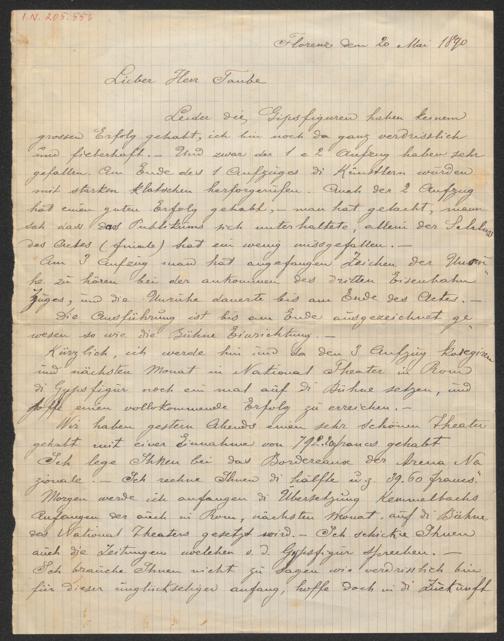 I.N. 205.556
Florenz den 20 Mai 1890
Lieber Herr Taube
Leider die Gipsfiguren haben keinem
grossen Erfolg gehabt, ich bin noch da ganz verdriesslich
und fieberhaft. – Und zwar der 1 e 2 Aufzug haben sehr
gefallen. Am Ende des 1 Aufzuges di Künstlern wurden
mit starken klatschen herforgerufen. Auch der 2 Aufzug
hat einen guten Erfolg gehabt, – man hat gelacht, man
sah dass das Publikums sich unterhaltete, allein der Schluss
des Actes (finale) hat ein wenig missgefallen. –
Am 3 Aufzug man hat angefangen Zeichen der Unru=
he zu hören bei der ankommen des dritten Eisenbahn
Zuges, und die Unruhe dauerte bis am Ende des Actes. –
Die Ausführung ist bis am Ende ausgezeichnet ge=
wesen so wie die Bühne Einrichtung. –
Kürzlich, ich werde hin und da den 3 Aufzug
und nächsten Monat in National Theater in Rom
di Gypsfigur noch ein mal auf di Bühne setzen, und
hoffe einen vollkommende Erfolg zu erreichen. –
Wir haben gestern Abends einen sehr schönen Theater
gehabt mit einer Einnahme von francs gehabt
Ich lege Ihnen bei das Bordereaux der Arena Na
zionale. – Ich rechne Ihnen di hälfte u.z. 39.60 francs
Morgen werde ich anfangen di Übersetzung
Anfangen der auch in Rom, nächsten Monat, auf di Bühne
des National Theaters gesetzt wird. – Ich schicke Ihnen
auch die Zeitungen welchen v. d. Gypsfigur sprechen. –
Ich brauche Ihnen nicht zu sagen wie verdrisslich bin
für dieser unglückseliger anfang, hoffe doch in di Zuckunft